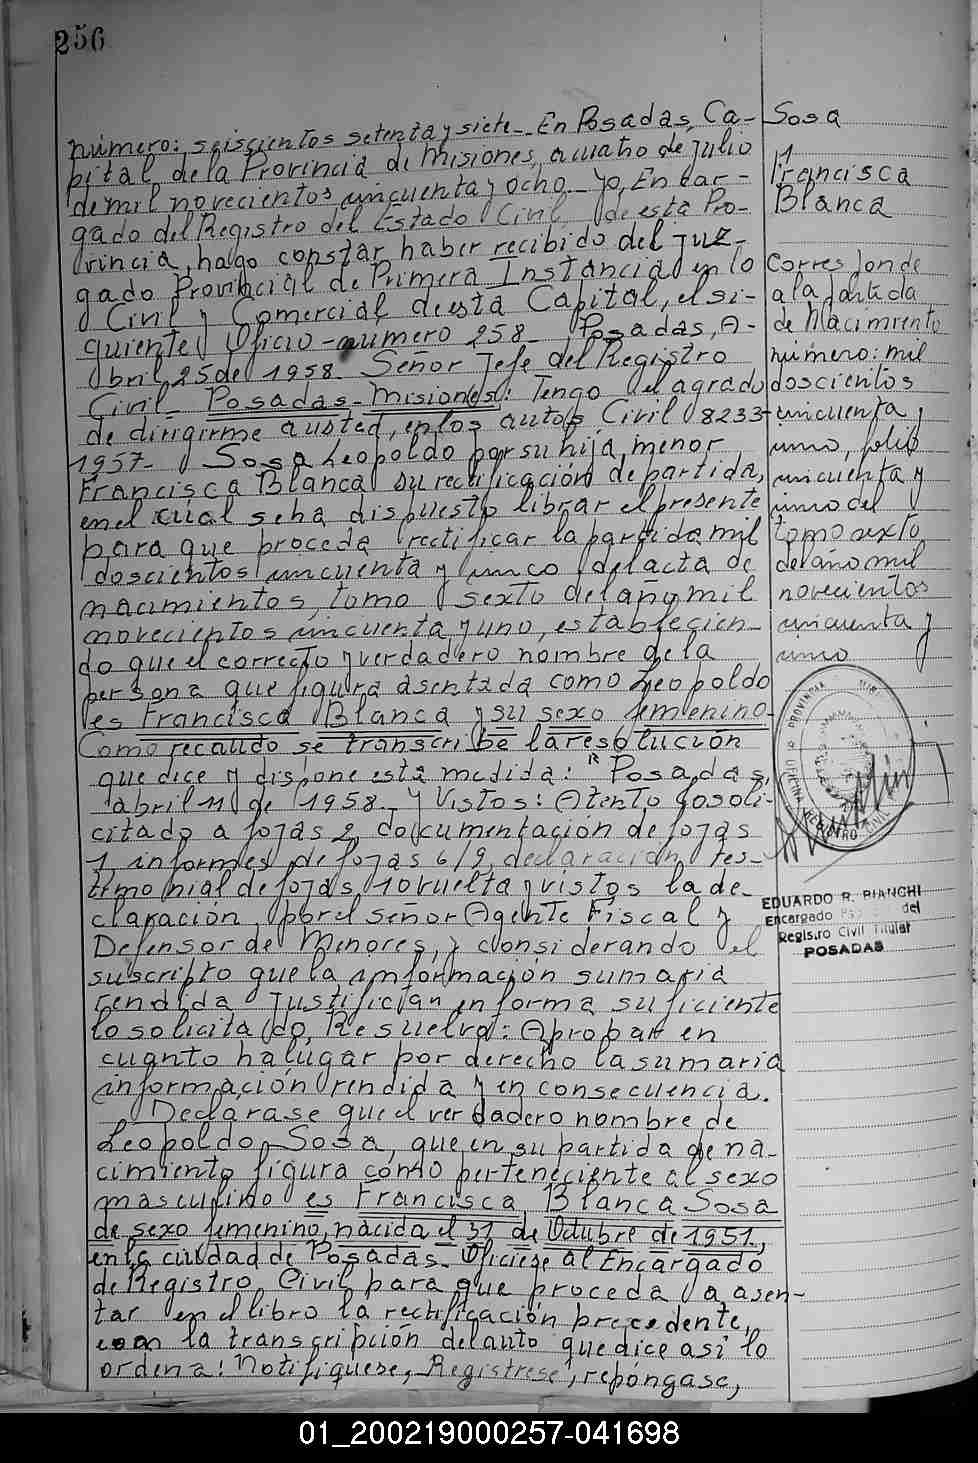 256
número: seiscientos setenta y siete_ En Posadas, Ca-
pital de la Provincia de Misiones, a cuatro de julio
de mil novecientos cincuenta y ocho_ Yo, Encar-
gado del Registro del Estado Civil de esta Pro-
vincia, hago constar haber recibido del Juz-
gado Provincial de Primera Instancia en lo
Civil y Comercial de esta Capital, el si-
guiente Oficio-número 258_ Posadas, A-
bril 25 de 1958_ Señor Jefe del Registro
Civil_ Posadas-Misiones: Tengo el agrado
de dirigirme a usted, en los autos Civil 8233-
1957- Sosa Leopoldo por su hija menor
Francisca Blanca su rectificación de partida,
en el cual se ha dispuesto librar el presente
para que proceda rectificar la partida mil
doscientos cincuenta y unco del acta de
nacimientos, tomo sexto del año mil
novecientos cincuenta y uno, establecien-
do que el correcto y verdadero nombre de la
persona que figura asentada como Leopoldo
es Francisca Blanca y su sexo femenino-
Como recaudo se transcribe la resolución
que dice y dispone esta medida: "Posadas,
abril 11 de 1958_ Y Vistos: Atento lo soli-
citado a fojas 2, documentación de fojas
1, informes de fojas 6/9, declaración tes-
timonial de fojas 10 vuelta y vistos la de-
claración por el señor Agente Fiscal y
Defensor de Menores, y considerando el
suscripto que la imformación sumaria
rendida justifician en forma suficiente
lo solicitado, Resuelvo: Aprobar en
cuanto ha lugar por derecho la sumaria
información rendida y en consecuencia.
Declarase que el verdadero nombre de
Leopoldo Sosa, que en su partida de na-
cimiento figura como perteneciente al sexo
masculino es Francisca Blanca Sosa
de sexo femenino, nacida el 31 de Octubre de 1951,
en la ciudad de Posadas_ Oficiese al Encargado
de Registro Civil para que proceda a asen-
tar en el libro la rectificación precedente,
con la transcripción del auto que dice así lo
ordena: Notifiquese, Registrese, repóngase,
Sosa
Francisca
Blanca
Corresponde
a la partida
de Nacimiento
número: mil
doscientos
cincuenta y
uno, folio
cincuenta y
uno del
tomo sexto
del año mil
novecientos
cincuenta y
uno
EDUARDO R. BIANCHI
Encargado del
Registro Civil Titular
POSADAS
01_200219000257-041698